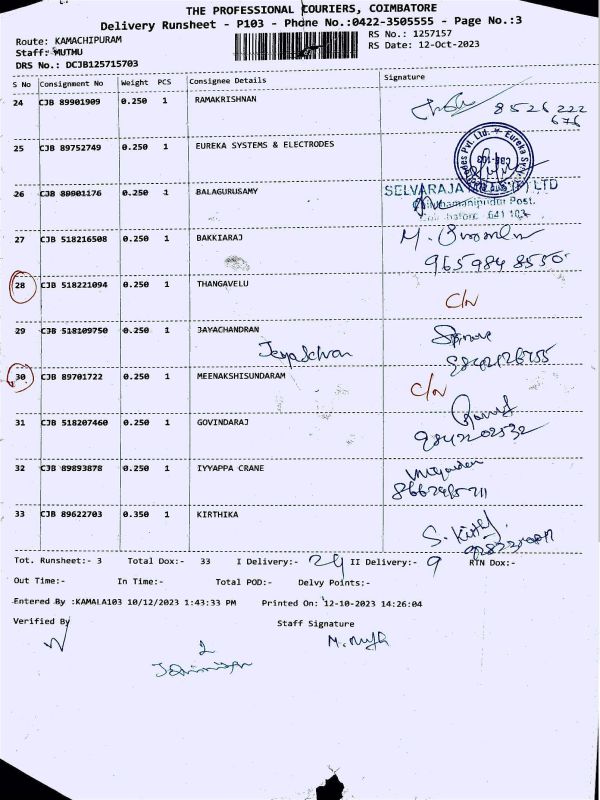 THE PROFESSIONAL COURIERS, COIMBATORE
Delivery Runsheet - P103 - Phone No.:0422-3505555 - Page No.:3
Route: KAMACHIPURAM
RS No.: 1257157
Staff: MUTHU
RS Date: 12-Oct-2023
DRS No.: DCJB125715703
S No Consignment No Weight PCS Consignee Details Signature
24 CJB 89901909 0.250 1 RAMAKRISHNAN
8526222
676
25 CJB 89752749 0.250 1 EUREKA SYSTEMS & ELECTRODES
26 CJB 89901176 0.250 1 BALAGURUSAMY
SELVARAJA LTD
Post.
641 103
27 CJB 518216508 0.250 1 BAKKIARAJ M.
9659848550
28 CJB 518221094 0.250 1 THANGAVELU C/N
29 CJB 518109750 0.250 1 JAYACHANDRAN
30 CJB 89701722 0.250 1 MEENAKSHISUNDARAM C/N
31 CJB 518207460 0.250 1 GOVINDARAJ
9842202532
32 CJB 89893878 0.250 1 IYYAPPA CRANE
33 CJB 89622703 0.350 1 KIRTHIKA
S.
Tot. Runsheet:- 3 Total Dox:- 33 I Delivery:- 24 II Delivery:- 9 RTN Dox:-
Out Time:- In Time:- Total POD:- Delvy Points:-
Entered By :KAMALA103 10/12/2023 1:43:33 PM Printed On: 12-10-2023 14:26:04
Verified By Staff Signature